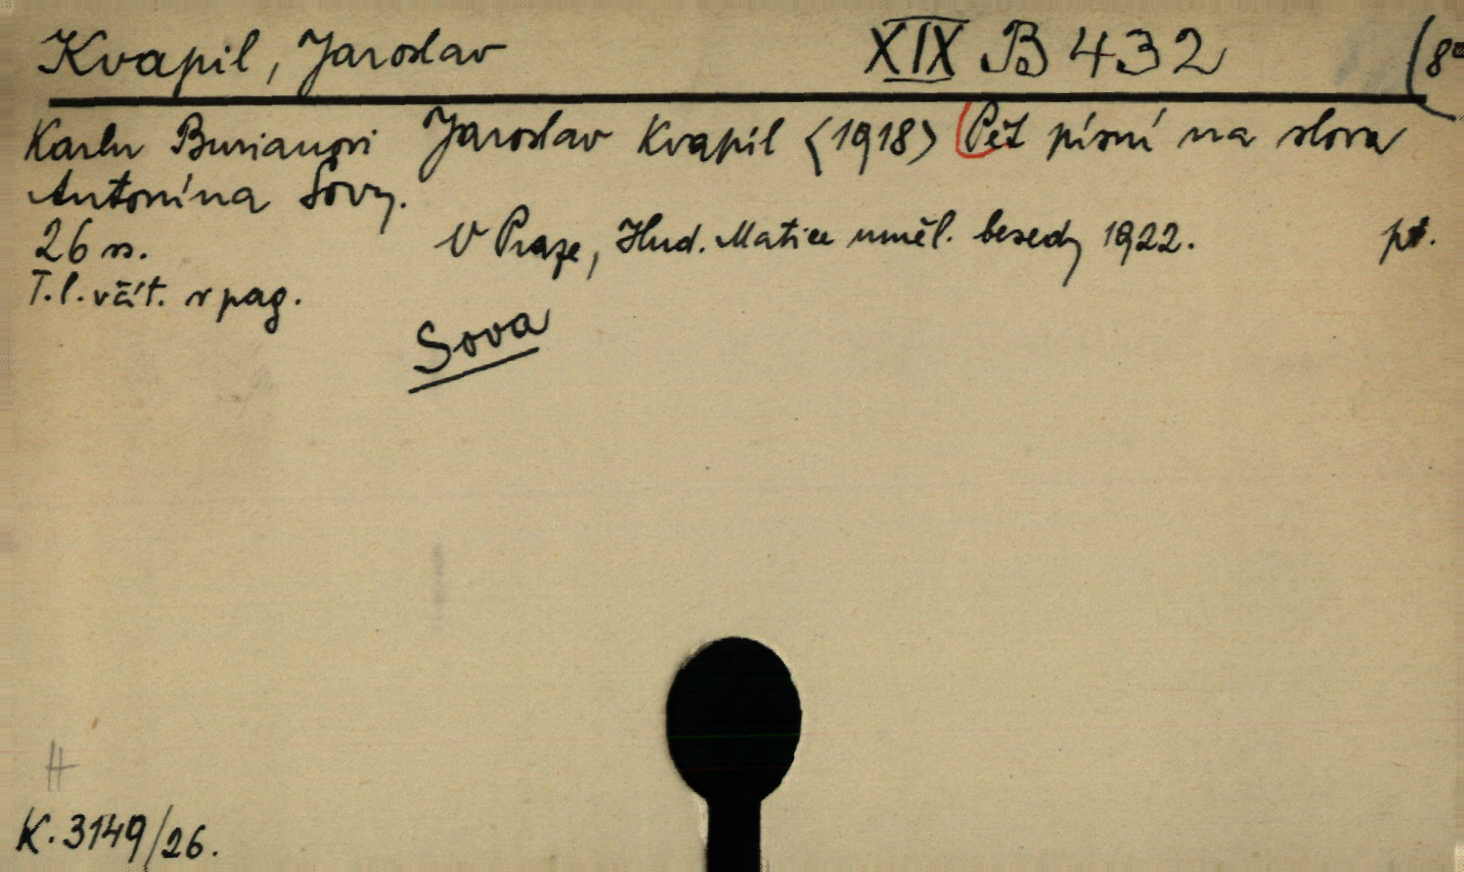 Kvapil, Jaroslav XIX B 432 (8°
Karlu Burianovi Jaroslav Kvapil <1918> Pět písní na slova
Antonína Sovy.
26 ss. V Praze, Hud. Matice uměl. besedy 1922. pt.
T.l. včít. v pag.
Sova
H
K. 3149/26.